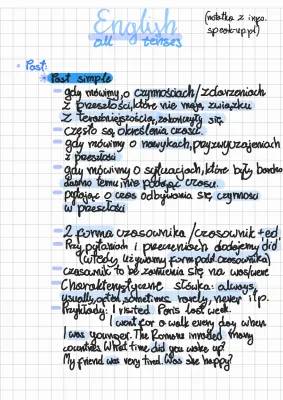 English
all tenses
(notatka z ings.
speak-up.pl)
Past:
Past simple
gdy mówimy o czynnościach/zdarzeniach
z przeszłości, które nie mają związku
z teraźniejszością, zakończyły się.
często są określenia czasu.
gdy mówimy o nawykach, przyzwyczajeniach
z przeszłości
gdy mówimy o sytuacjach, które były bardzo
dawno temu nie podając czasu.
pytając o czas odbywania się czynności
w przeszłości
2 forma czasownika/czasownik + ed.
Przy pytaniach i przeczeniach dodajemy did
(wtedy używamy form podst. czasownika)
czasownik to be zamienia się na was/were
Charakterystyczne słówka: always,
usually, often, sometimes, rarely, never itp.
Przykłady: I visited Paris last week.
I went for a walk every day when
I was younger. The Romans invaded many
countries. What time did you wake up?
My friend was very tired. Was she happy?